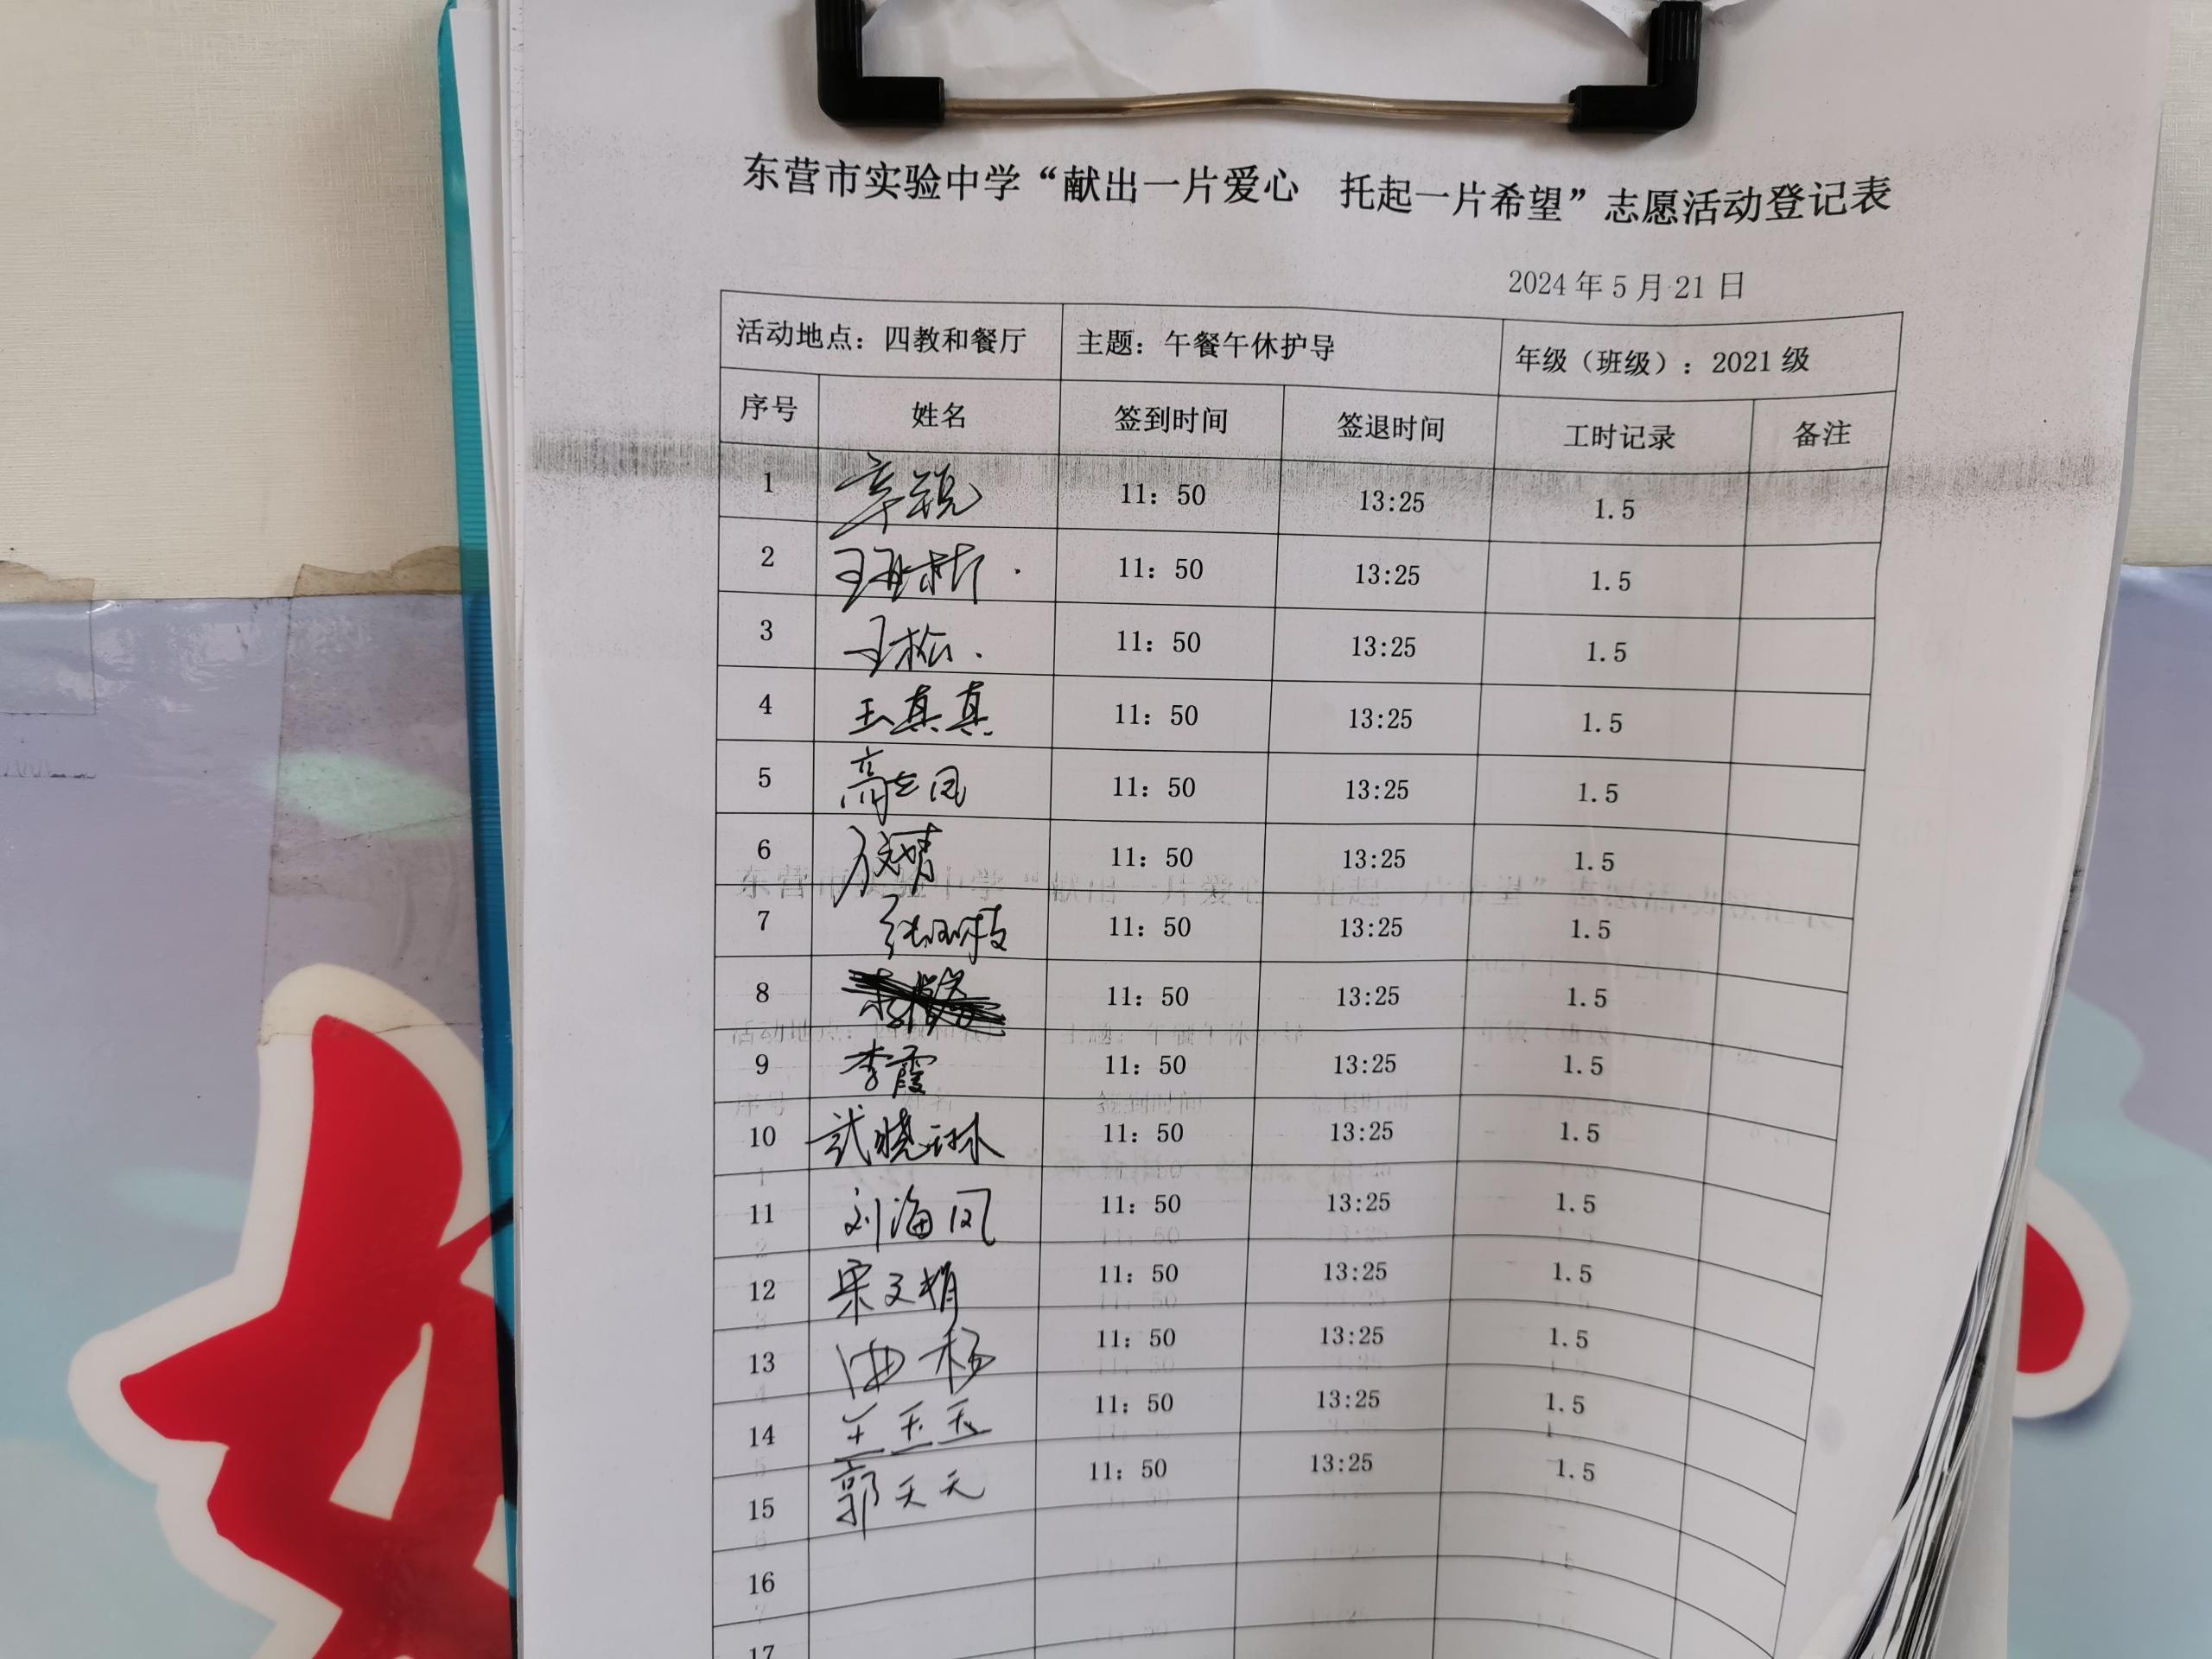 东营市实验中学“献出一片爱心 托起一片希望”志愿活动登记表
2024年5月21日
活动地点：四教和餐厅 主题：午餐午休护导 年级（班级）：2021级
序号 姓名 签到时间 签退时间 工时记录 备注
1 辛锐 11：50 13:25 1.5
2 11：50 13:25 1.5
3 王松 11：50 13:25 1.5
4 王真真 11：50 13:25 1.5
5 高志凤 11：50 13:25 1.5
6 11：50 13:25 1.5
7 11：50 13:25 1.5
8 11：50 13:25 1.5
9 李霞 11：50 13:25 1.5
10 武晓琳 11：50 13:25 1.5
11 刘海凤 11：50 13:25 1.5
12 宋文娟 11：50 13:25 1.5
13 曲杨 11：50 13:25 1.5
14 王玉玉 11：50 13:25 1.5
15 郭天天 11：50 13:25 1.5
16
17